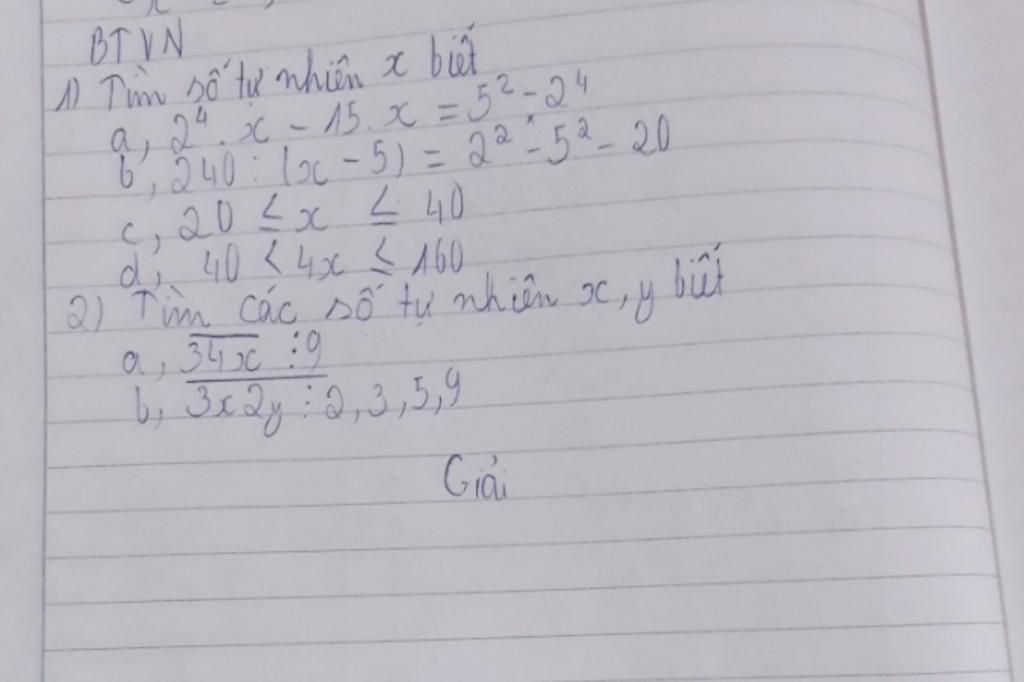 BTVN
1) Tìm số tự nhiên x biết
a, 2⁴. x - 15. x = 5² - 2⁴
b, 240 : (x - 5) = 2² - 5² - 20
c, 20 ≤ x ≤ 40
d, 40 < 4x ≤ 160
2) Tìm các số tự nhiên x, y biết
a, 34x ⋮ 9
b, 3x2y ⋮ 2, 3, 5, 9
Giải